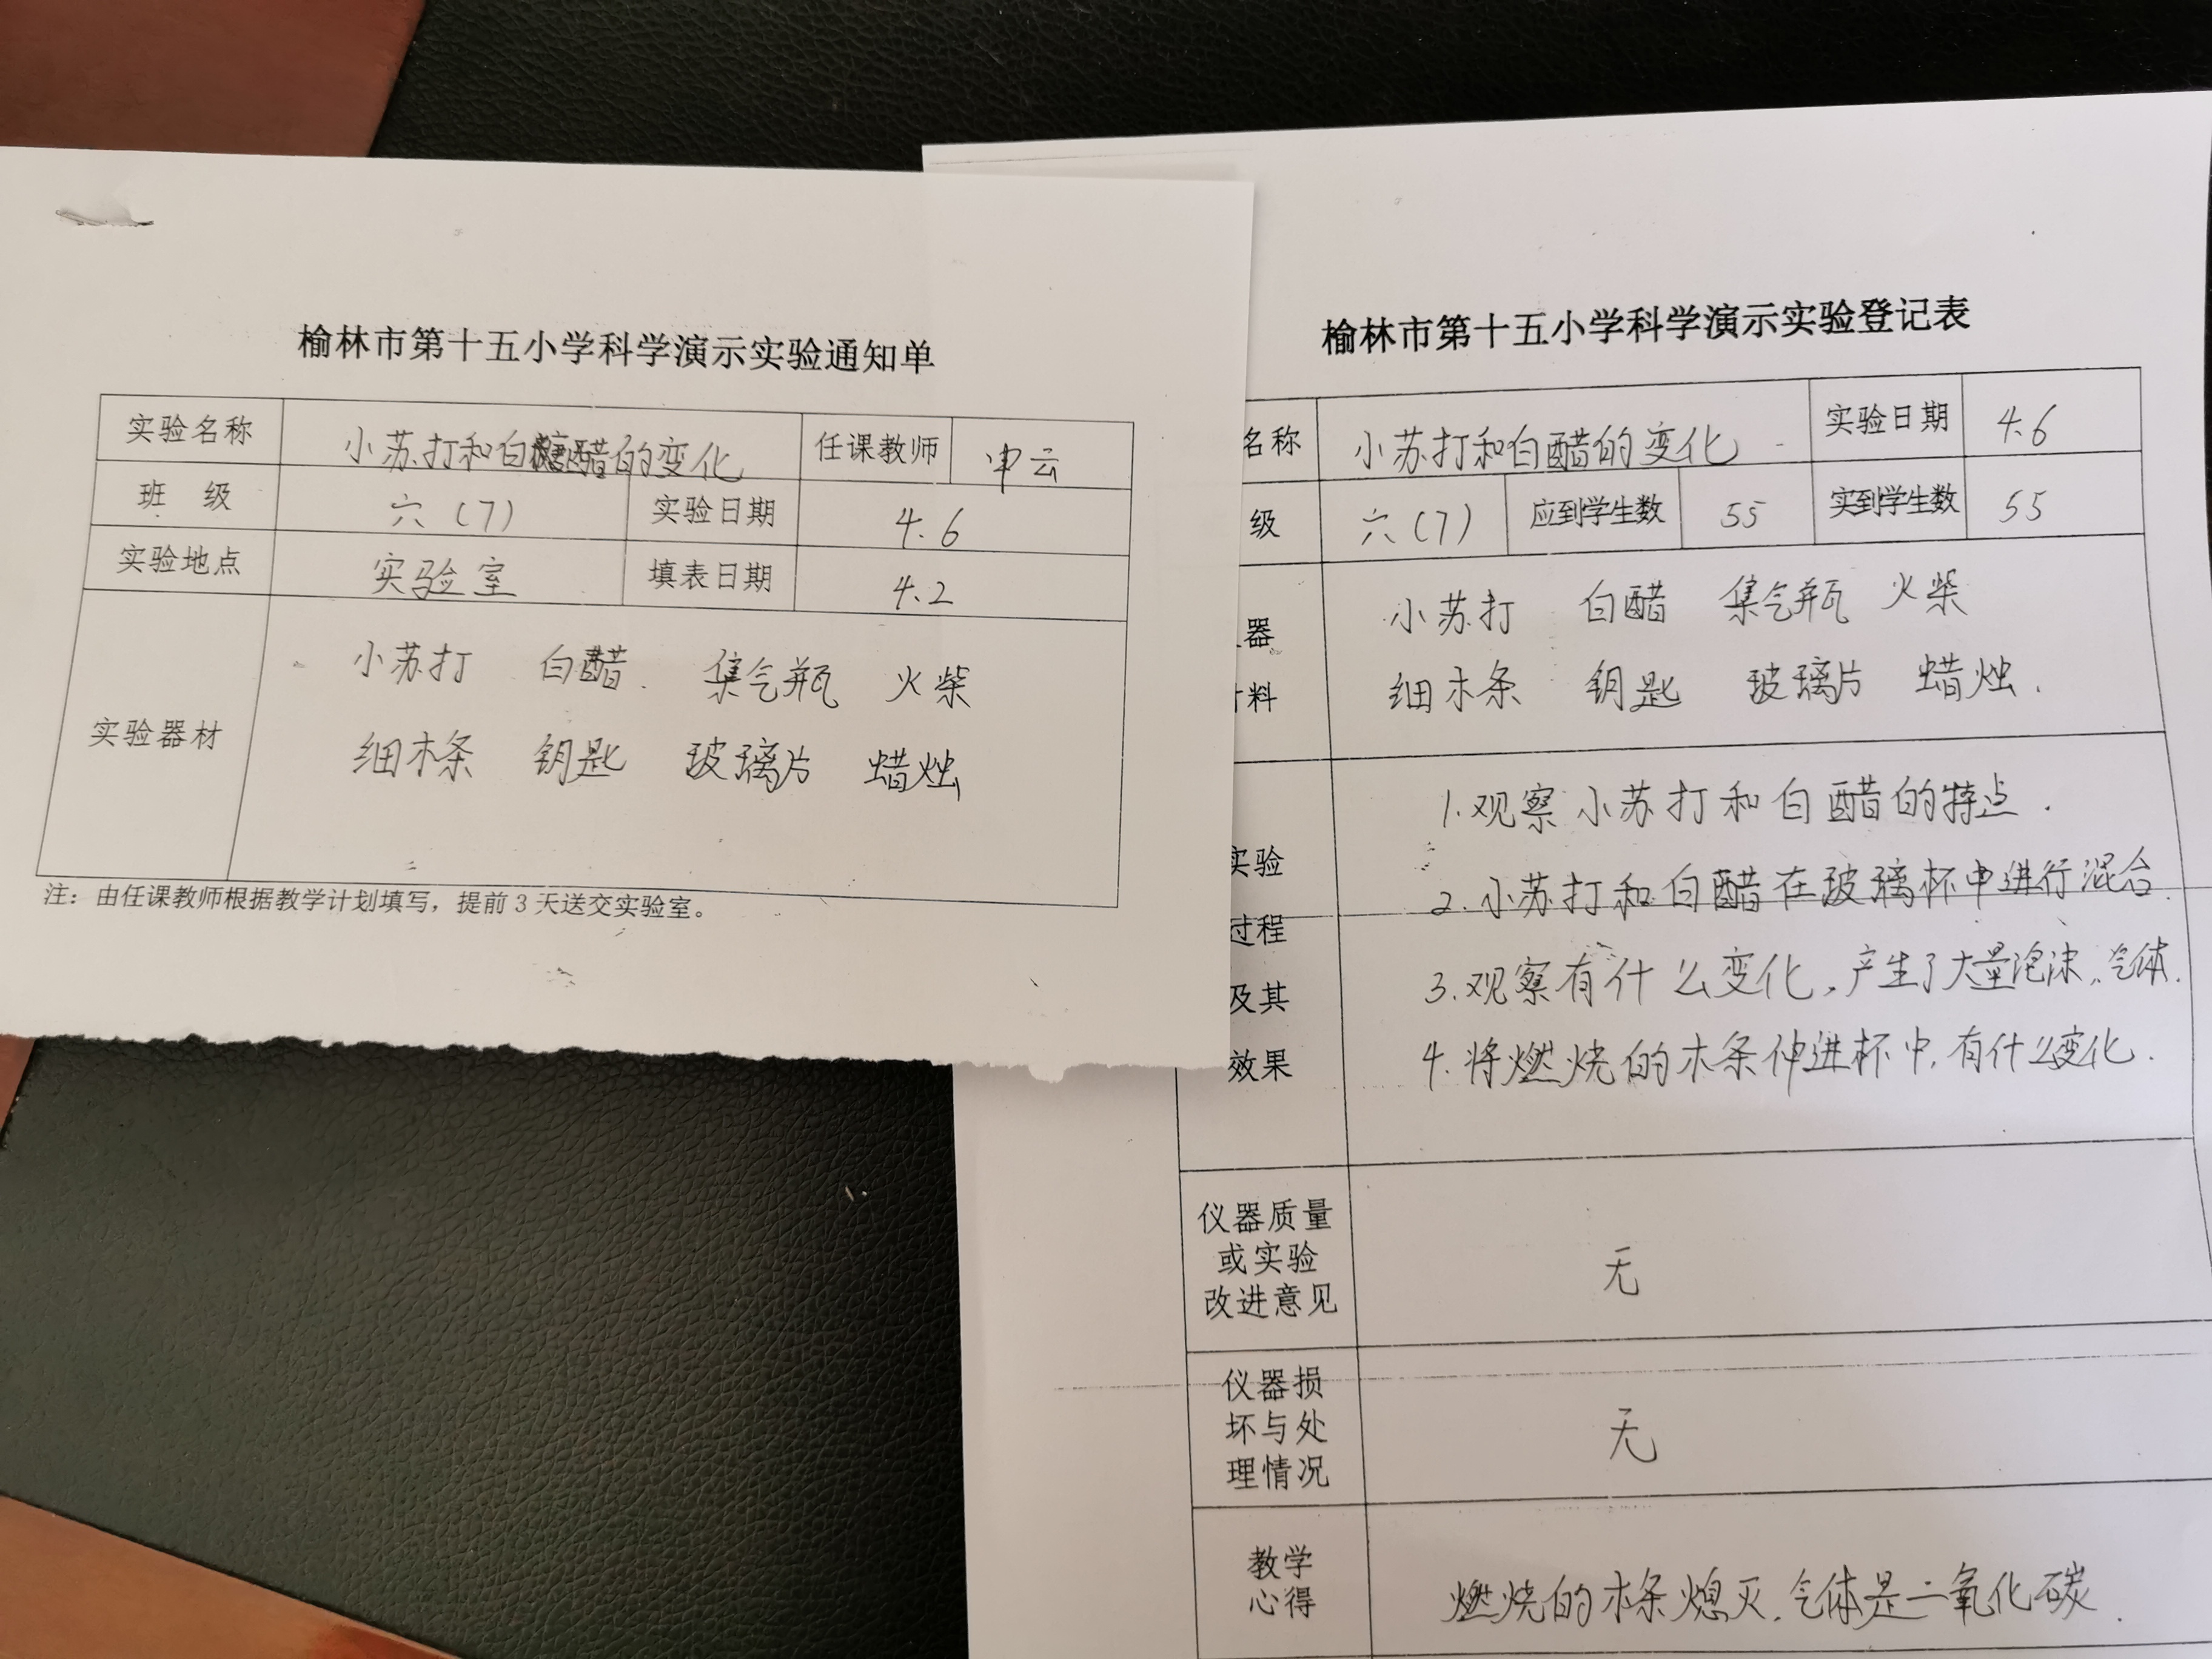 榆林市第十五小学科学演示实验通知单
实验名称 小苏打和白醋的变化 任课教师 申云
班 级 六（7） 实验日期 4.6
实验地点 实验室 填表日期 4.2
实验器材
小苏打 白醋. 集气瓶 火柴
细木条 钥匙 玻璃片 蜡烛
注：由任课教师根据教学计划填写，提前3天送交实验室。
榆林市第十五小学科学演示实验登记表
名称 小苏打和白醋的变化 实验日期 4.6
级 六（7） 应到学生数 55 实到学生数 55
器
料
小苏打 白醋 集气瓶 火柴
细木条 钥匙 玻璃片 蜡烛.
实验
过程
及其
效果
1.观察小苏打和白醋的特点.
2.小苏打和白醋在玻璃杯中进行混合.
3.观察有什么变化,产生了大量泡沫,气体.
4.将燃烧的木条伸进杯中,有什么变化.
仪器质量
或实验
改进意见
无
仪器损
坏与处
理情况
无
教学
心得
燃烧的木条熄灭,气体是二氧化碳.